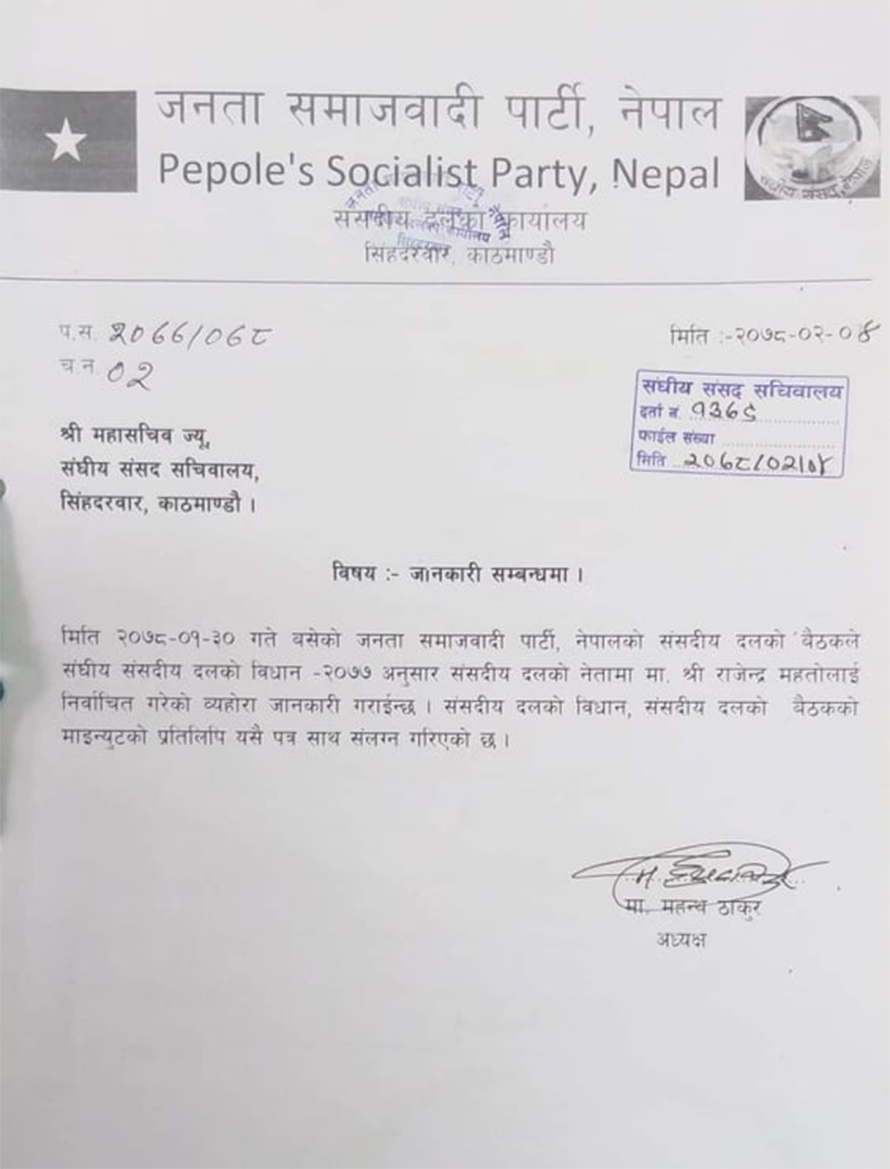 जनता समाजवादी पार्टी, नेपाल
Pepole's Socialist Party, Nepal
संसदीय दलको कार्यालय
सिंहदरवार, काठमाण्डौ
संघीय संसद, नेपाल
प.स. २०७७/०७८
मिति :-२०७८-०२-०४
च.न. ०२
संघीय संसद सचिवालय
दर्ता नं. १३७९
फाईल संख्या
मिति २०७८/०२/०४
श्री महासचिव ज्यू,
संघीय संसद सचिवालय,
सिंहदरवार, काठमाण्डौ ।
विषय :- जानकारी सम्बन्धमा ।
मिति २०७८-०१-३० गते बसेको जनता समाजवादी पार्टी, नेपालको संसदीय दलको बैठकले
संघीय संसदीय दलको विधान -२०७७ अनुसार संसदीय दलको नेतामा मा. श्री राजेन्द्र महतोलाई
निर्वाचित गरेको व्यहोरा जानकारी गराईन्छ । संसदीय दलको विधान, संसदीय दलको बैठकको
माइन्युटको प्रतिलिपि यसै पत्र साथ संलग्न गरिएको छ ।
मा. महन्थ ठाकुर
अध्यक्ष